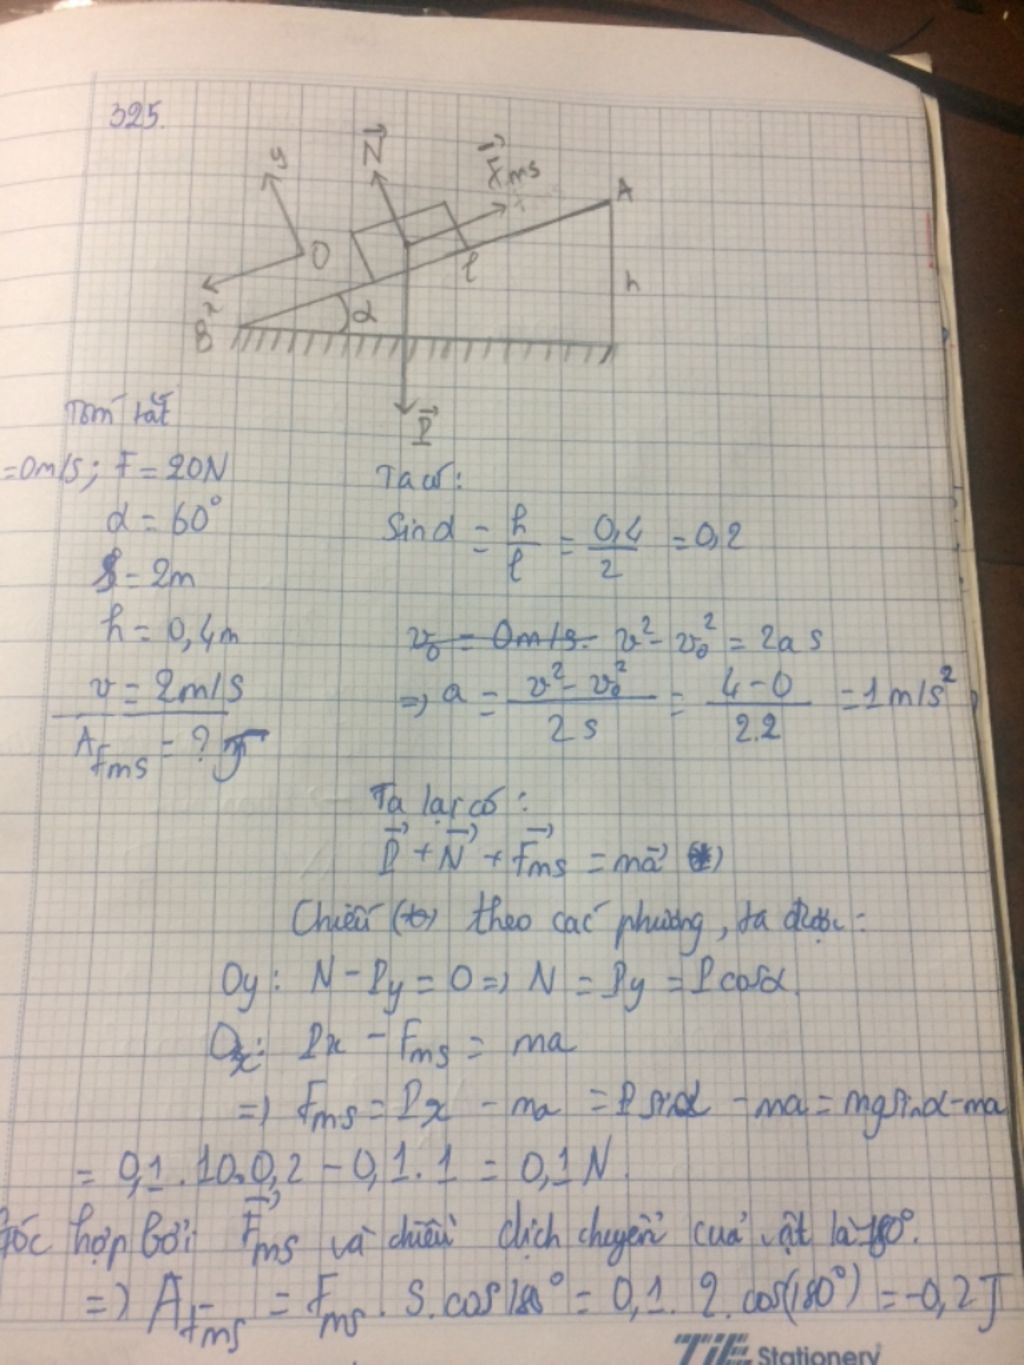 325.
y
N
Fms
A
O
l
h
x
B
α
P
Tóm tắt
=0m/s; F = 20N
Ta có:
α = 60°
Sin α = h/l = 0,4/2 = 0,2
s = 2m
h = 0,4m
v₀ = 0m/s. v² - v₀² = 2as
v = 2m/s
=> a = (v² - v₀²)/2s = (4-0)/2.2 = 1m/s²
A Fms = ? J
Ta lại có:
P + N + Fms = ma (*)
Chiếu (*) theo các phương, ta được:
Oy: N - Py = 0 => N = Py = P cosα.
Ox: Px - Fms = ma
=> Fms = Px - ma = P sinα - ma = mg sinα - ma
= 0,1.10.0,2 - 0,1.1 = 0,1N.
Góc hợp bởi Fms và chiều dịch chuyển của vật là 180°.
=> A Fms = Fms . S.cos180° = 0,1. 2.cos(180°) = -0,2J
TIE Stationery